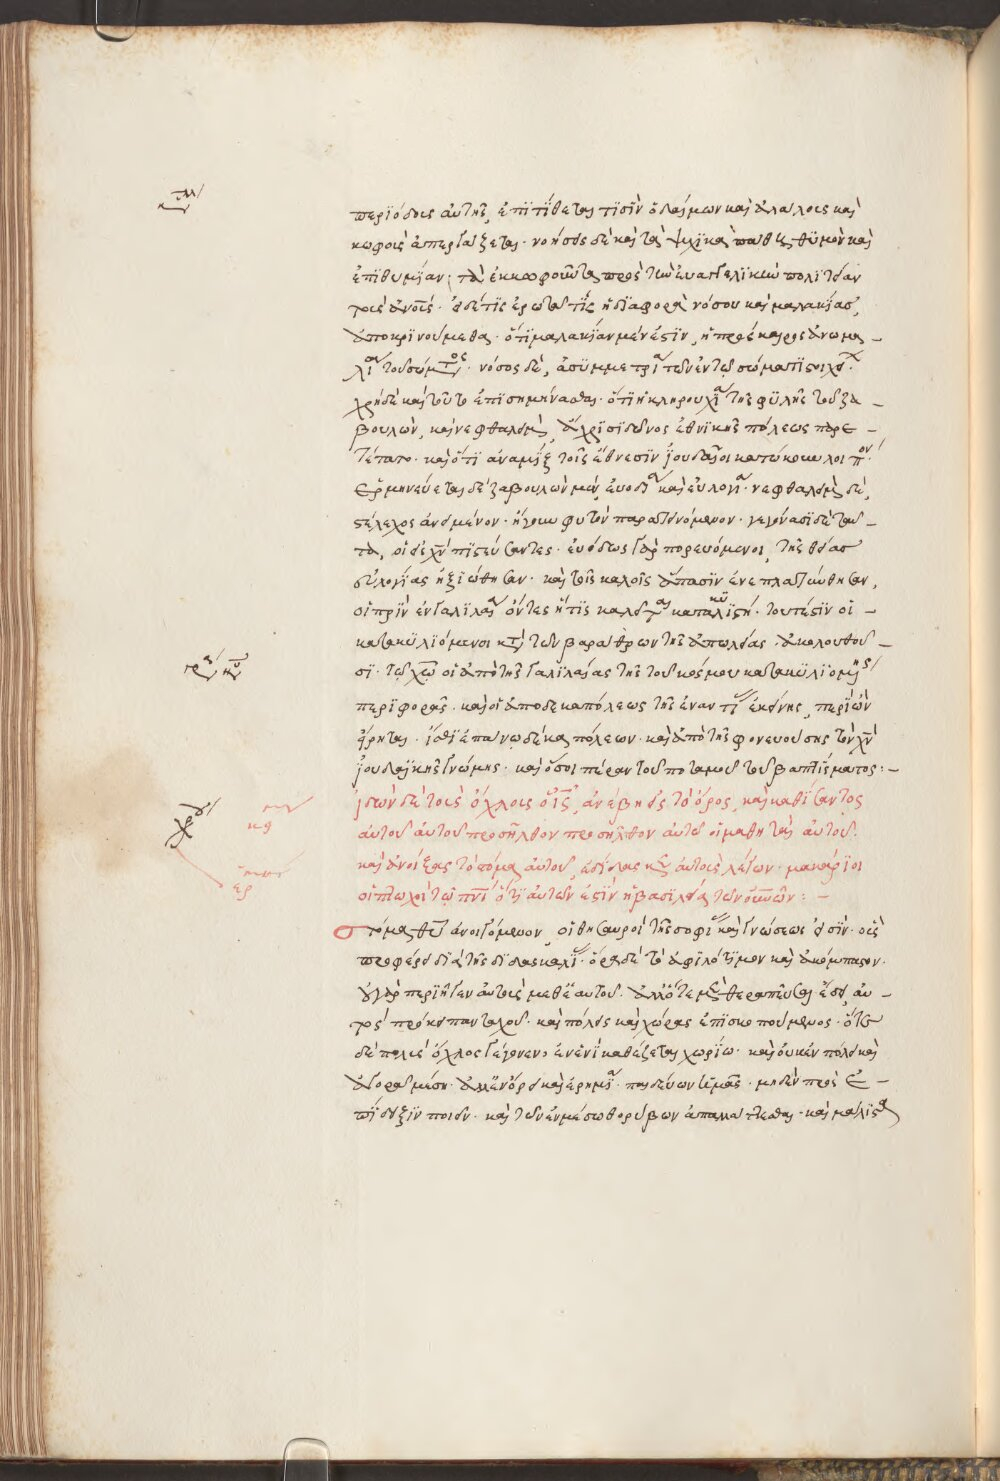 περϊόδοις αὐτῆς, ἐπιτίθεται τισὶν ὁ δαίμων καὶ ἀλάλους καὶ
κωφοὺς ἀπεργάζεται· νοήσεις δὲ καὶ τὰ ψυχϊκὰ πάθη, θϋμὸν καὶ
ἐπϊθυμίαν, τὰ ἐκκωφοῦντα πρὸς τὴν ἐυαγγελϊκὴν πολϊτείαν
τοὺς ἀνους· εἰ δέ τϊς ἐρωτᾶ τίς ἡ δϊαφορὰ νόσου καὶ μαλακίας,
ἀποκρϊνούμεθα· ὅτι μαλακίαν μέν ἐστϊν, ἡ πρόσκαιρος ἀνωμα
λία τοῦ σώματος· νόσος δὲ, ἀσϋμμετρία τῶν ἐν τῷ σώματι στοιχείων·
χρὴ δὲ καὶ τοῦτο ἐπϊσημήνασθαι· ὅτι ἡ κληρουχία τῆς φϋλῆς τοῦ ζα
βουλὼν, καὶ νεφθαλεὶμ, ἄχρϊ σϊδῶνος ἐθνϊκῆς πόλεως παρε
τέτατο· καὶ ὅτϊ ἀναμὶξ τοῖς ἔθνεσϊν ϊουδαῖοι κατώκουν
ἑρμηνεύεται δὲ ζαβουλὼν μὲν, ἐυοδία καὶ εὐλογία· νεφθαλεὶμ δὲ,
στέλεχος ἀνειμένον· ἤγουν φυτὸν παρατεινόμενον· γεγόνασϊ δὲ ταῦ
τα, οἱ εἰς χν πϊστεύσαντες· ἐυόδως γὰρ πορευόμενοι, τῆς θείας
εὐλογίας ἠξϊώθησαν· καὶ τοῖς καλοῖς ἅπασϊν ἐνεπλατύνθησαν,
οἱ πρὶν ἐν γαλϊλαία ὄντες ἥτϊς καλεῖται τουτέστϊν οἱ
κατακϋλϊόμενοι τῶν βαράθρων τῆς ἀπωλείας· ἀκολουθοῦ
σι· τῷ χῷ οἱ ἀπὸ τῆς γαλϊλαίας τῆς τοῦ κόσμου κατακϋλϊομένης
περϊφορᾶς· καὶ οἱ ἀπὸ δεκαπόλεως τῆς ἐναντίας ἐκείνης, περὶ ὧν
εἴρηται· ἴσθϊ ἐπάνω δέκα πόλεων· καὶ ἀπὸ τῆς φονευούσης τὸν χν
ϊουδαϊκῆς γνώμης· καὶ ὅσοι πέραν τοῦ ποταμοῦ τοῦ βαπτίσματος:
ϊδὼν δὲ τοὺς ὄχλους ὁ ις, ἀνέβη εἰς τὸ ὄρος, καὶ καθίσαντος
αὐτοῦ αὐτοῦ προσῆλθον προσῆλθον αὐτῷ οἱ μαθηταὶ αὐτοῦ.
καὶ ἀνοίξας τὸ στόμα αὐτοῦ, ἐδίδασκεν αὐτοὺς λέγων· μακάρϊοι
οἱ πτωχοὶ τῷ πνι ὅτι αὐτῶν ἐστϊν ἡ βασϊλεία τῶν οὐνῶν:
στόμα θυ ἀνοιγόμενον, οἱ θησαυροὶ τῆς σοφίας καὶ γνώσεως εἰσϊν· οὓς
προφέρει δϊὰ τῆς δϊδασκαλίας· ὅρα δὲ τὸ ἀφϊλότϊμον καὶ ἀκόμπαστον·
οὐ γὰρ περϊῆγεν αὐτοὺς μεθ' ἑαυτοῦ· ἀλλ' ὅτε μὲν θεραπεῦσαι ἔδει, αὐ
τὸς περιήει πανταχοῦ· καὶ πόλεις καὶ χώρας ἐπϊσκοπούμενος· ὅτε
δὲ πολὺς ὄχλος γέγονεν, ἐν ἑνὶ καθέζεται χωρίω· καὶ οὐκ ἐν πόλει καὶ
ἀγορᾶ μέση· ἀλλ' ἐν ὄρει καὶ ἐρημία· παιδεύων ἡμᾶς· μηδὲν πρὸς ἐ
πίδειξϊν ποιεῖν· καὶ τῶν ἐν μέσω θορύβων ἀπαλλάττεσθαι· καὶ μάλϊστα